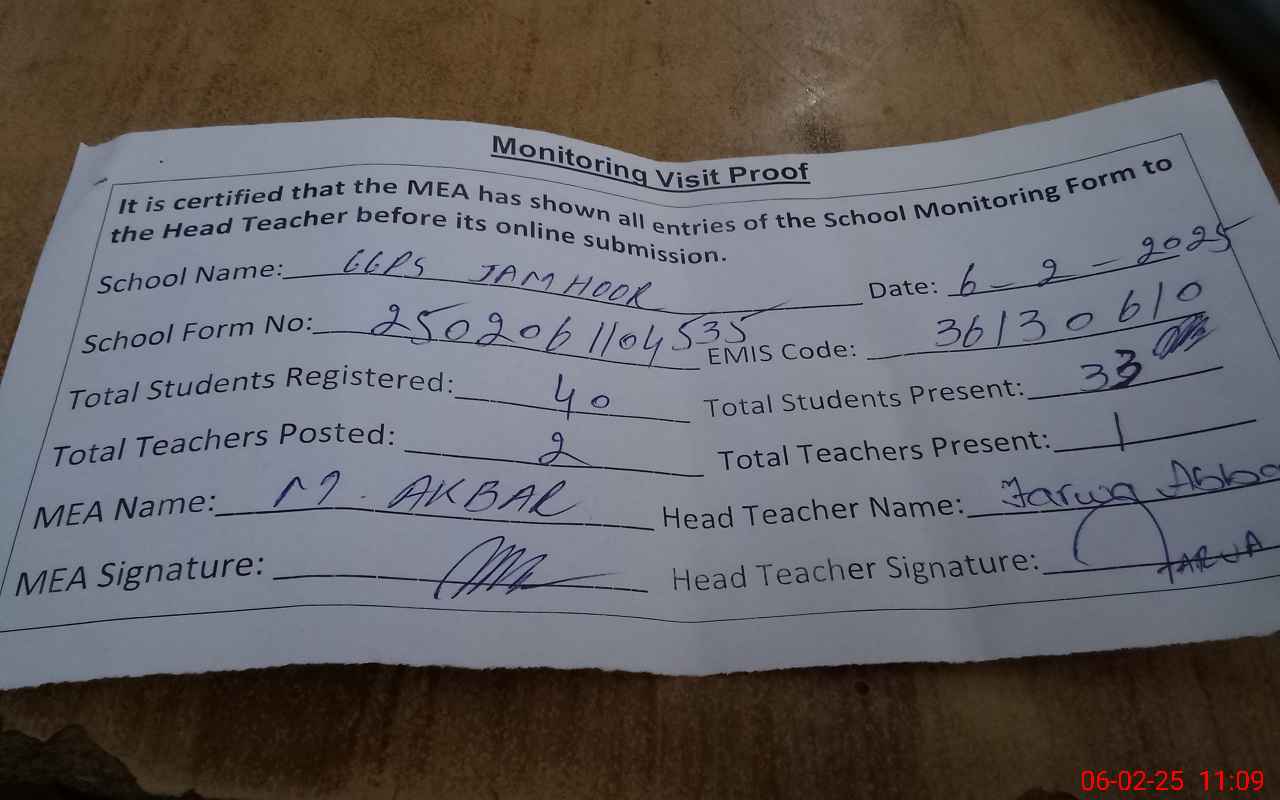 Monitoring Visit Proof
It is certified that the MEA has shown all entries of the School Monitoring Form to
the Head Teacher before its online submission.
School Name: GGPS JAMHOOR Date: 6-2-2025
School Form No: 2502061104535 EMIS Code: 36130610
Total Students Registered: 40 Total Students Present: 33
Total Teachers Posted: 2 Total Teachers Present: 1
MEA Name: M. AKBAR Head Teacher Name: Farwa
MEA Signature: Head Teacher Signature: FARWA
06-02-25 11:09